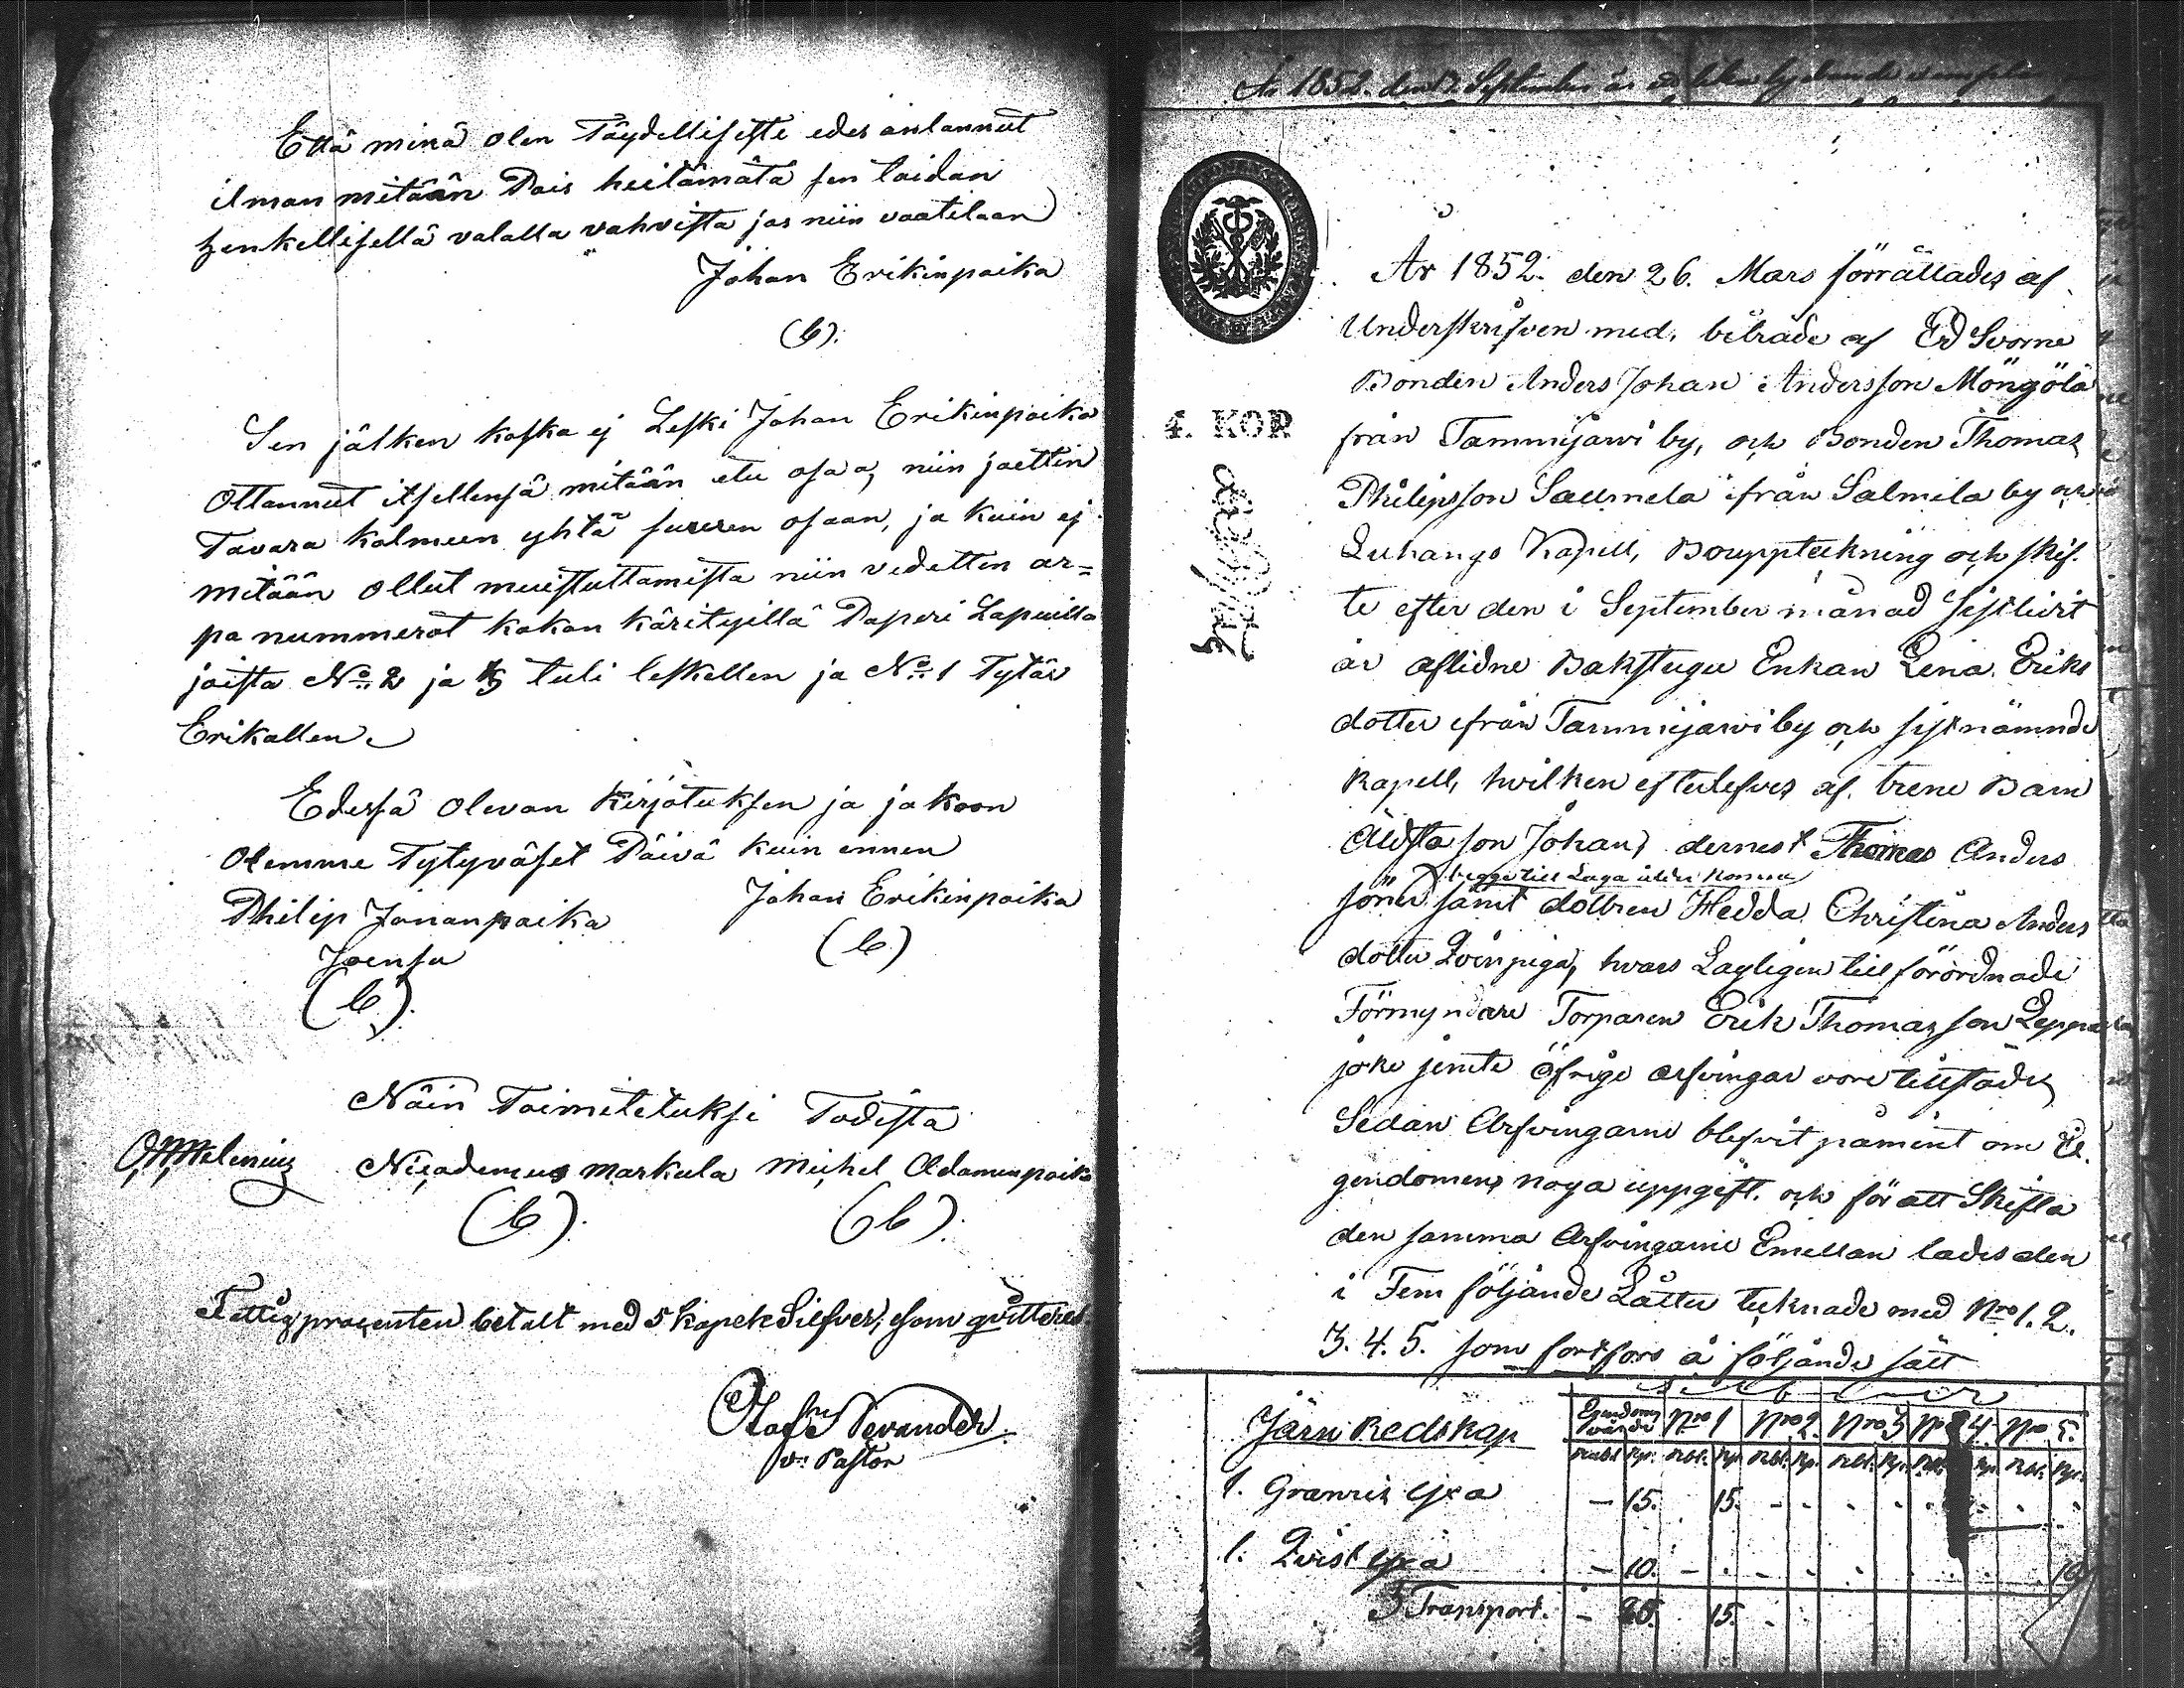 Että minä olen Täydellisesti edes andannut
ilman mitään Pois heitämätä sen taidan
henkellisellä valalla vahvista jos niin vaatitaan
Johan Erikinpoika
(b).
Sen jälken koska ej Leski Johan Erikinpoika
Ottannut itsellensä mitään etu osaa, niin jaettin
Tavara kolmeen yhtä suuren osaan, ja kuin ej
mitään ollut muistuttamista niin vedettin ar=
pa nummerot kokon käärityillä Paperi Lapuilla
joista No 2 ja 3 tuli leskellen ja No 1 Tytär
Erikallen
Edessä olevan kirjotuksen ja jakoon
Olemme Tytyväset Päivä kuin ennen
Philip Jonanpoika Johan Erikinpoika
Joensu (b)
(b).
Näin Toimitetuksi Todista
Nicademus Markula Michel Adamunpoika
(b). (b).
Fattigprocenten betalt med 5 kopek Silfver, som qvitteras
Olof Nevander
v. Pastor
År 1852. den 7. September
År 1852. den 26. Mars förrättades af
Underskrifven med. biträde af Ed Svorne
Bonden Anders Johan Andersson Möngölä
från Tammijärvi by, och Bonden Thomas
Philipsson Saumela ifrån Salmila by och
Luhango Kapell, Bouppteckning och skif-
4. KOP.
te efter den i September månad sistlidit
år aflidne Bakstugu Enkan Lena Eriks
dotter ifrån Tammijärvi by och sistnämnde
Kapell, hvilken efterlefves af trene Barn
Äldsta son Johan, dernest Thomas Anders
begge till Laga ålder komna
söner samt dottren Hedda Christina Anders
dotter Qvinpiga, hvars Lagligen till förordnade
Förmyndare Torparen Erik Thomasson
joki jemte öfrige arfvingar vore tillstädes
Sedan Arfvingarne blefvit påmint om E-
gendomens noga uppgift. och för att Skifta
den samma Arfvingarne Emellan lades den
i Fem följande Låtter tecknade med Nro 1. 2.
3. 4. 5. som fortfors å följande sätt
Järn Redskap Egendoms värde Nro 1 Nro 2. Nro 3 No 4. Nro 5.
Rubl. Kp. Rbl. Kp. Rbl. Kp. Rbl. Kp. Rbl. Kp. Rbl. Kp.
1. Granris yxa – 15. 15. – – – – – –
1. Qvist yxa – 10. – – – – – 10
Transport. – 25. 15. –